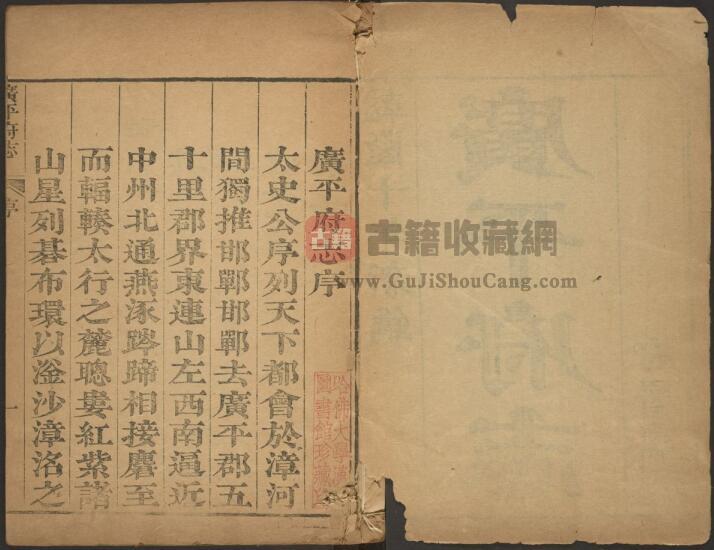 廣平府志序
太史公序列天下都會於漳河
間獨推邯鄲邯鄲去廣平郡五
十里郡界東連山左西南逼近
中州北通燕涿踤蹄相接麏至
而輻輳太行之麓聰婁紅紫諸
山星列碁布環以滏沙漳洺之
廣平府志
序
一
哈佛大學漢
圖書館珍藏
古籍
古籍收藏網
www.GuJiShouCang.com